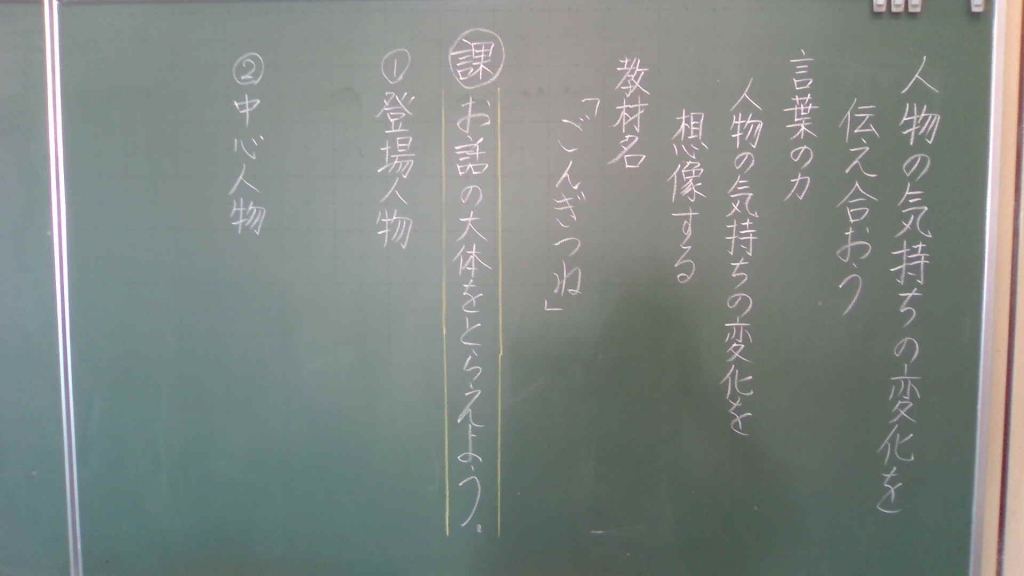 人物の気持ちの変化を
伝え合おう
言葉の力
人物の気持ちの変化を
想像する
教材名
「ごんぎつね」
課 お話の大体をとらえよう。
① 登場人物
② 中心人物